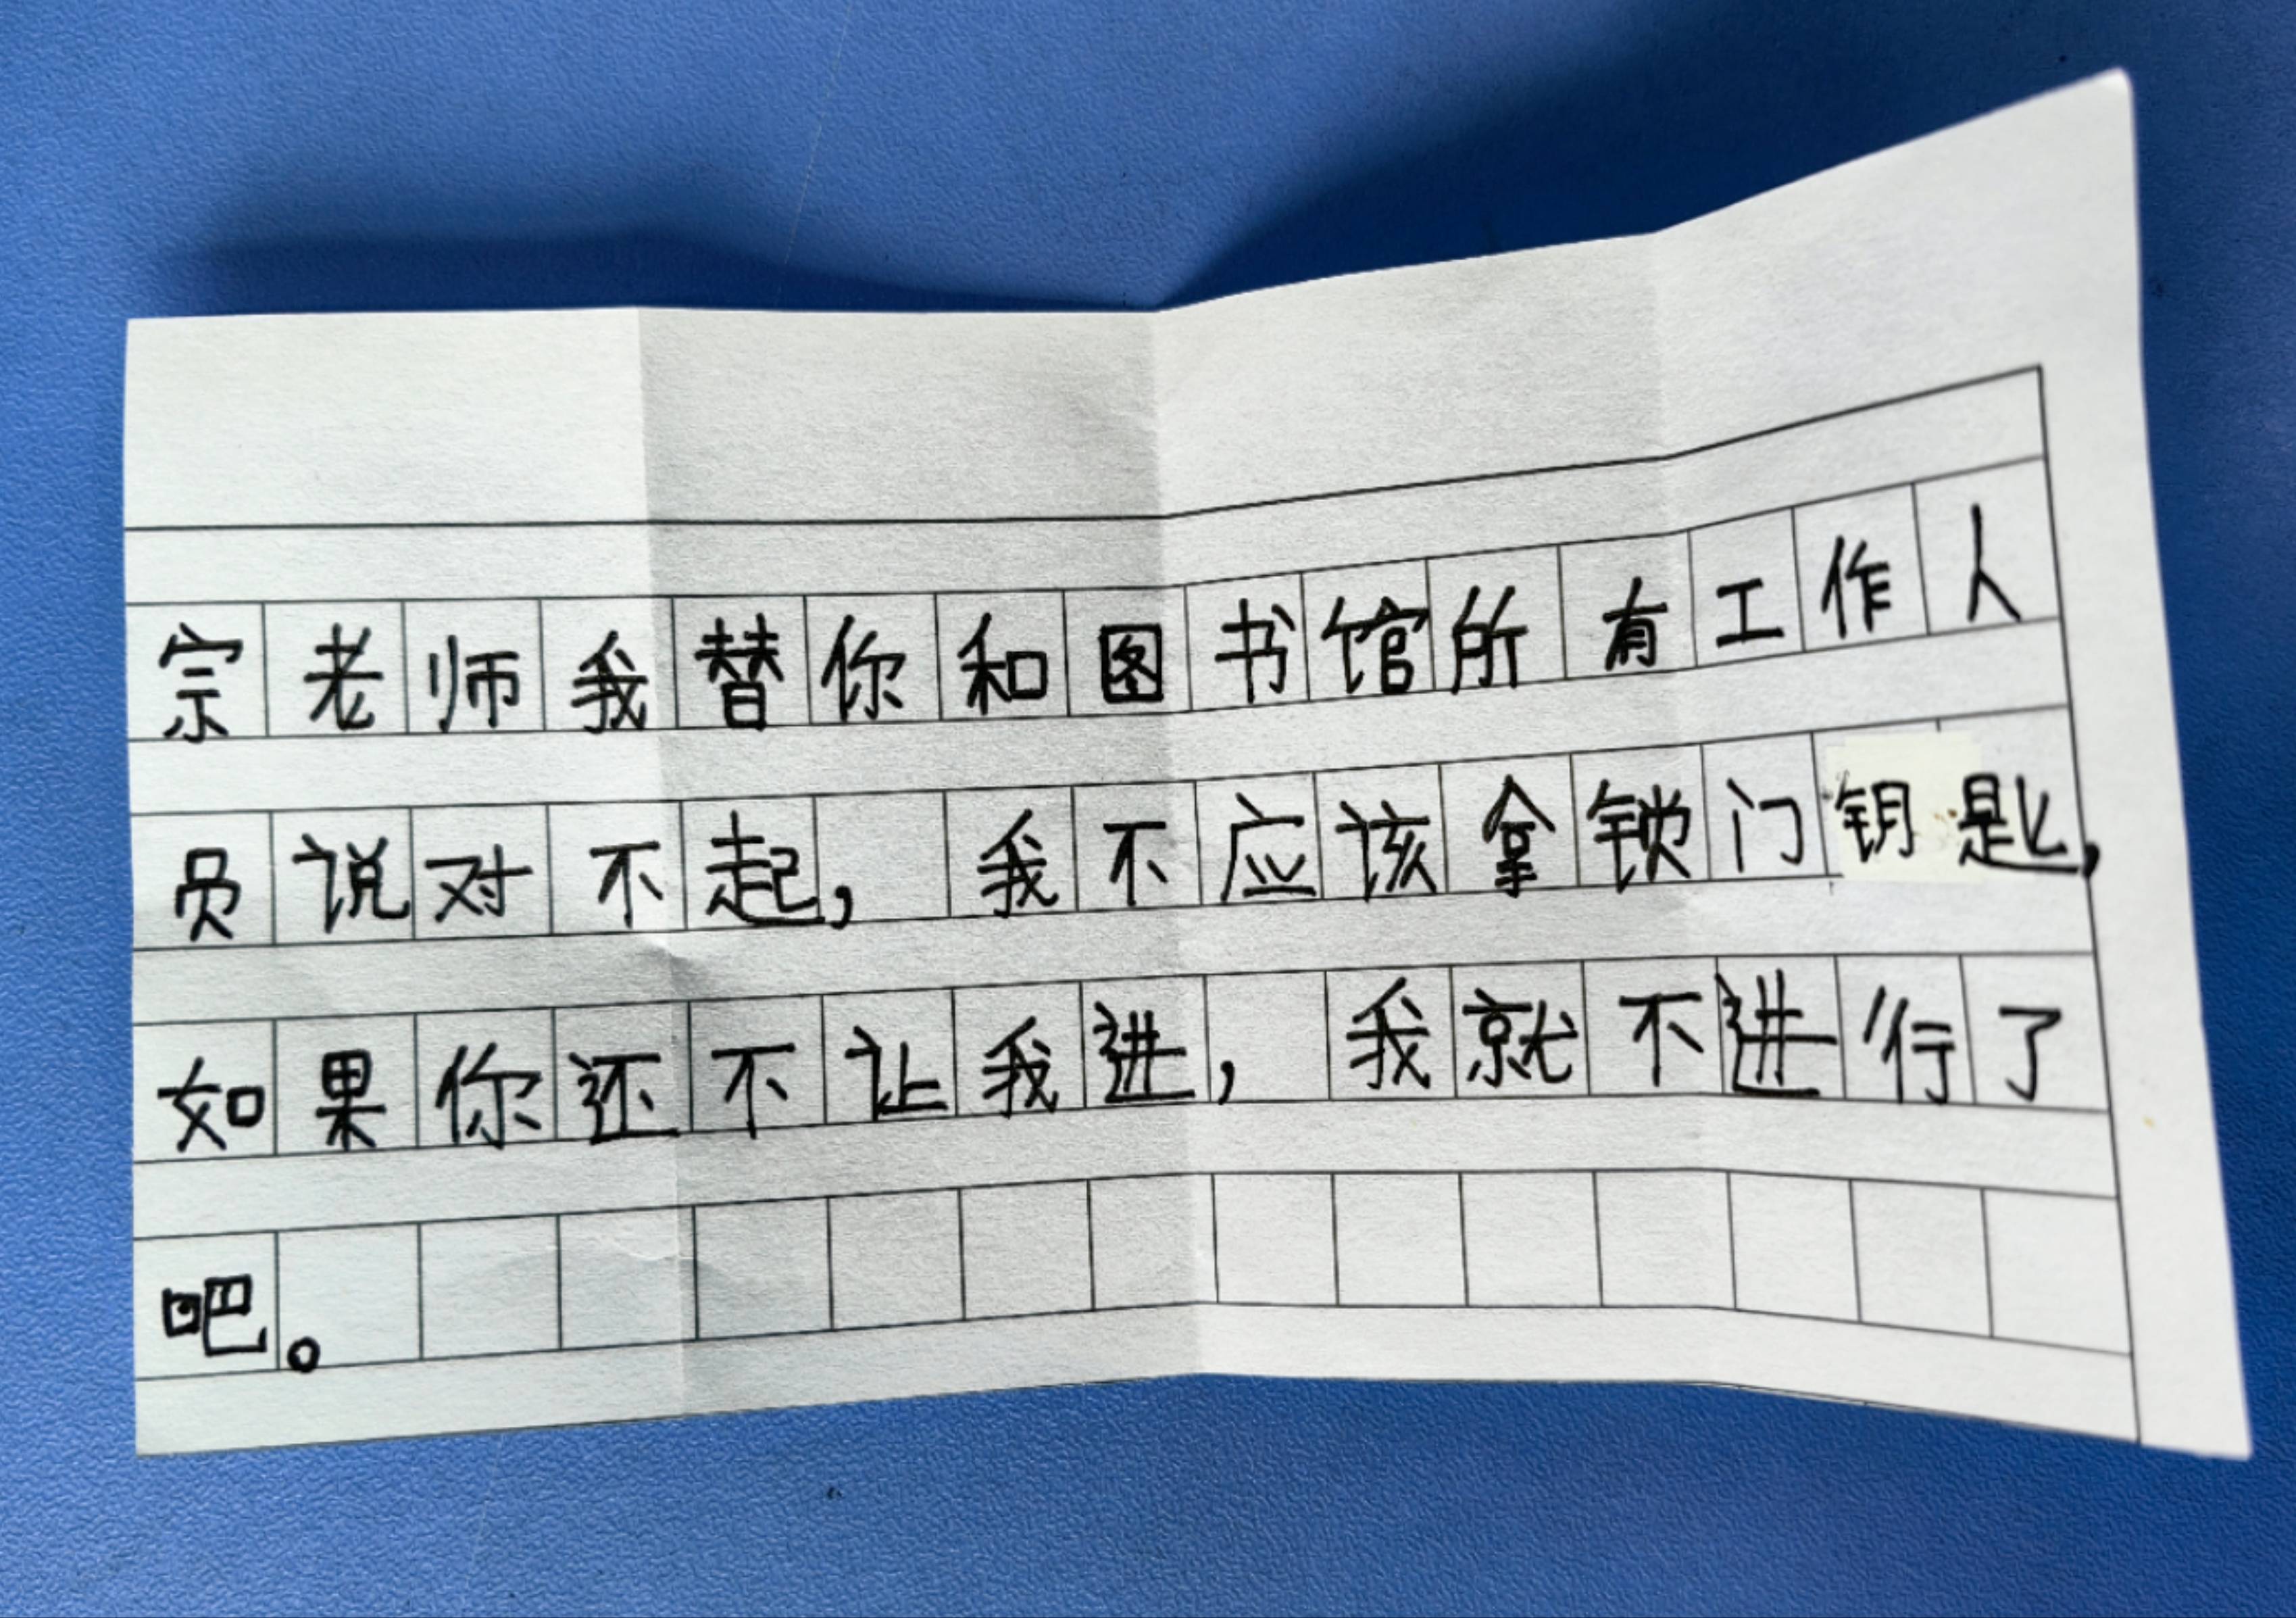 宗老师我替你和图书馆所有工作人
员说对不起，我不应该拿锁门钥匙，
如果你还不让我进，我就不进行了
吧。